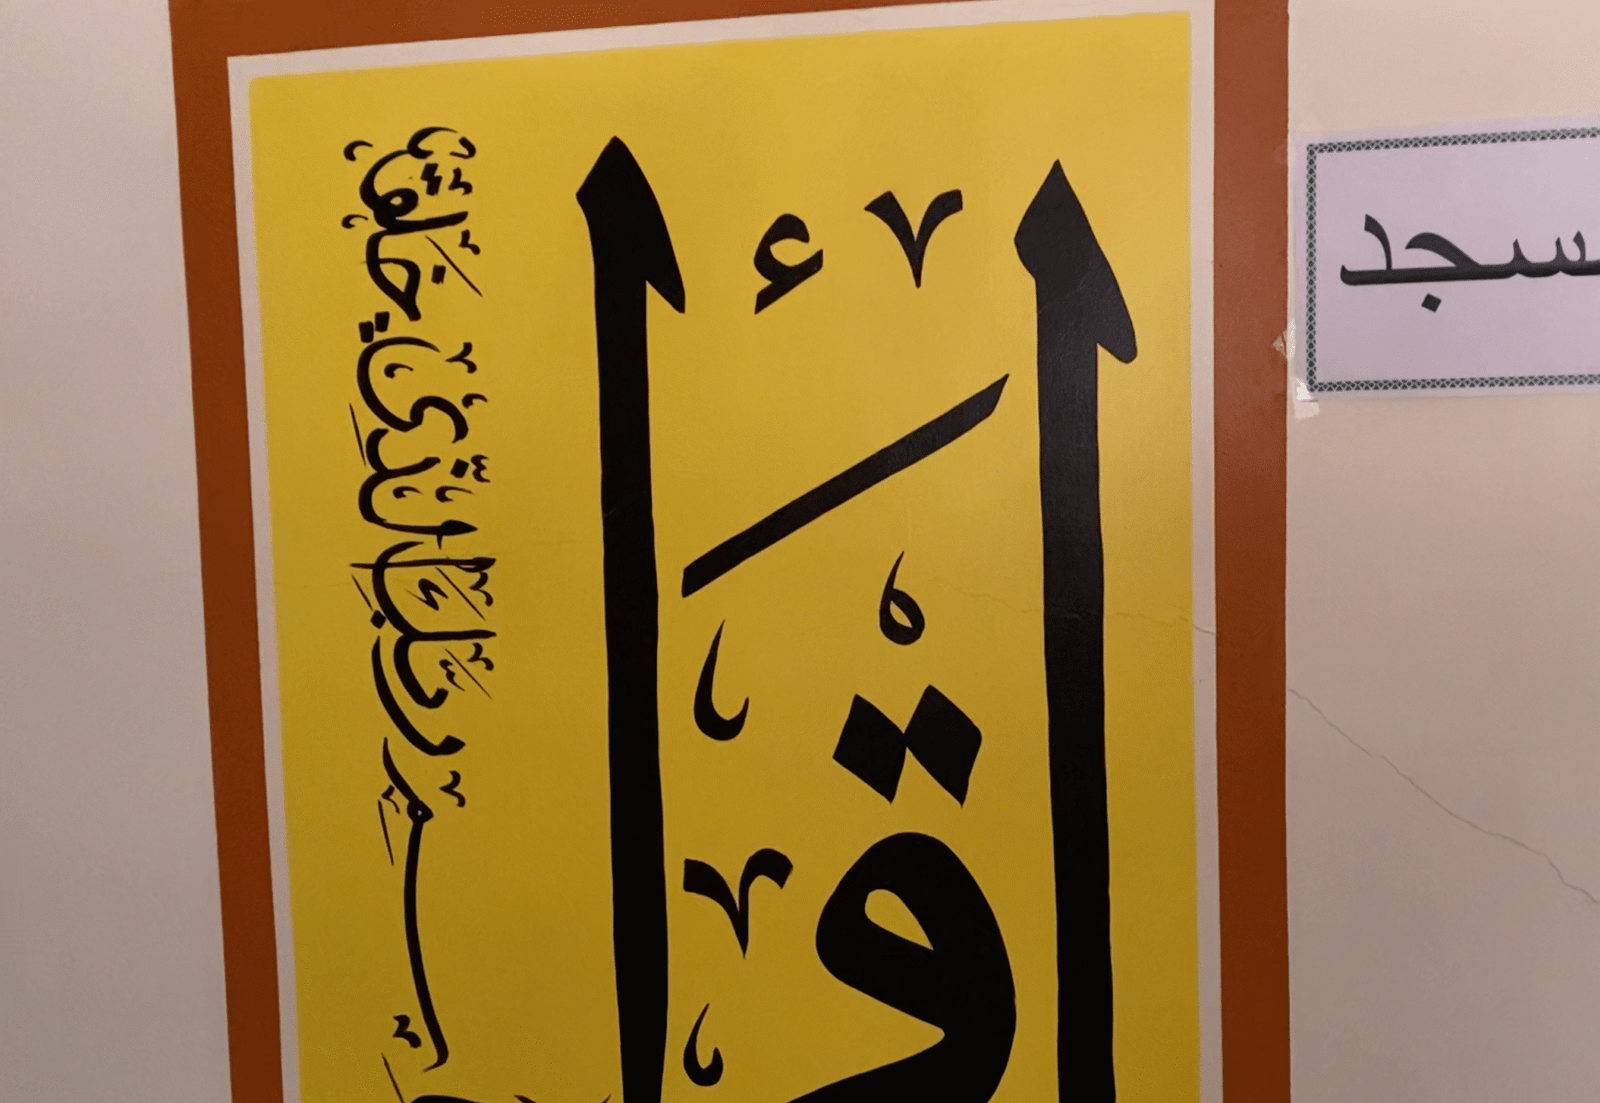 اقْرَأْ
رَبِّكَ الَّذِي خَلَقَ
سجد